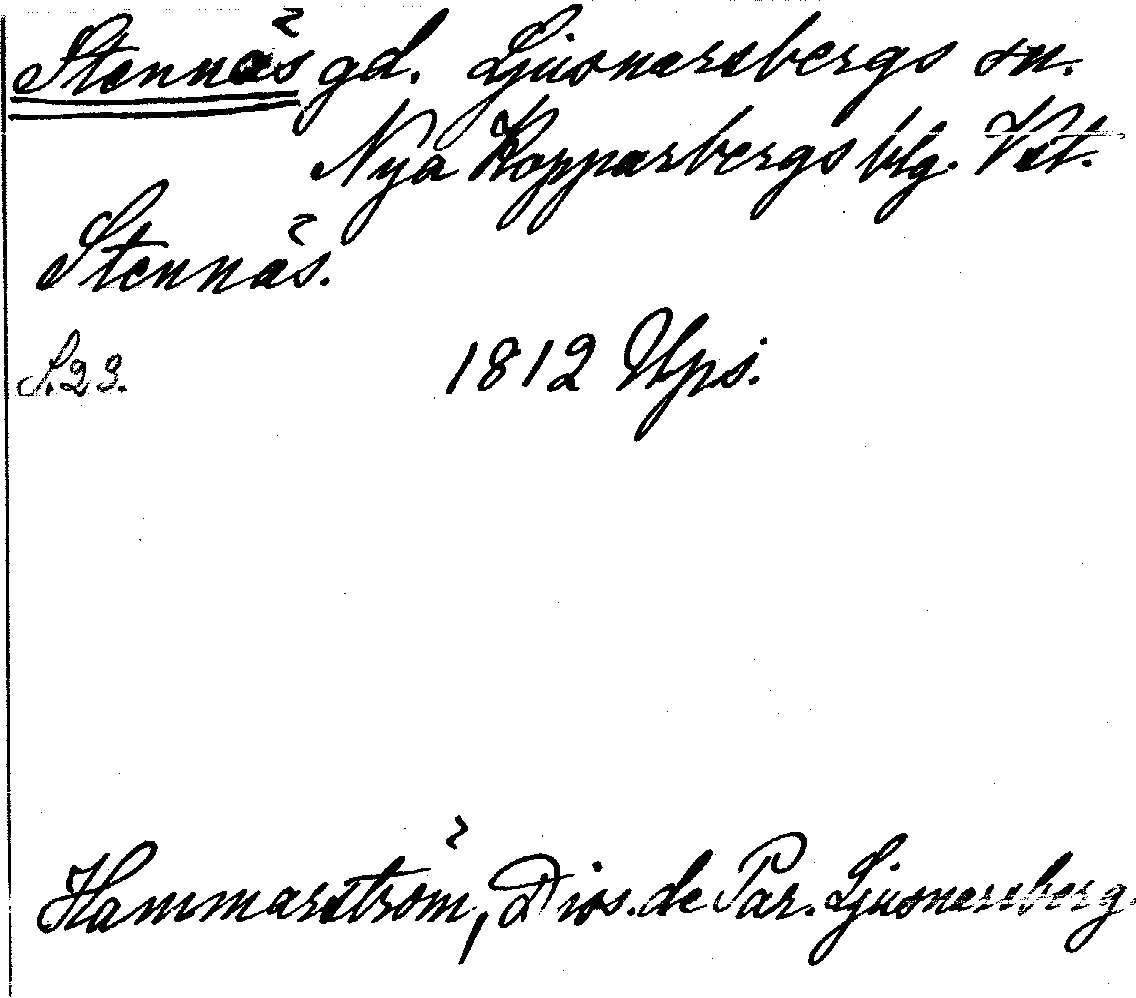 Stennäs gd. Ljusnarsbergs sn.
Nya Kopparbergs blg. Vst.
Stennäs.
S. 23. 1812 Ups.
Hammarström, Diss. de Par. Ljusnarsberg.